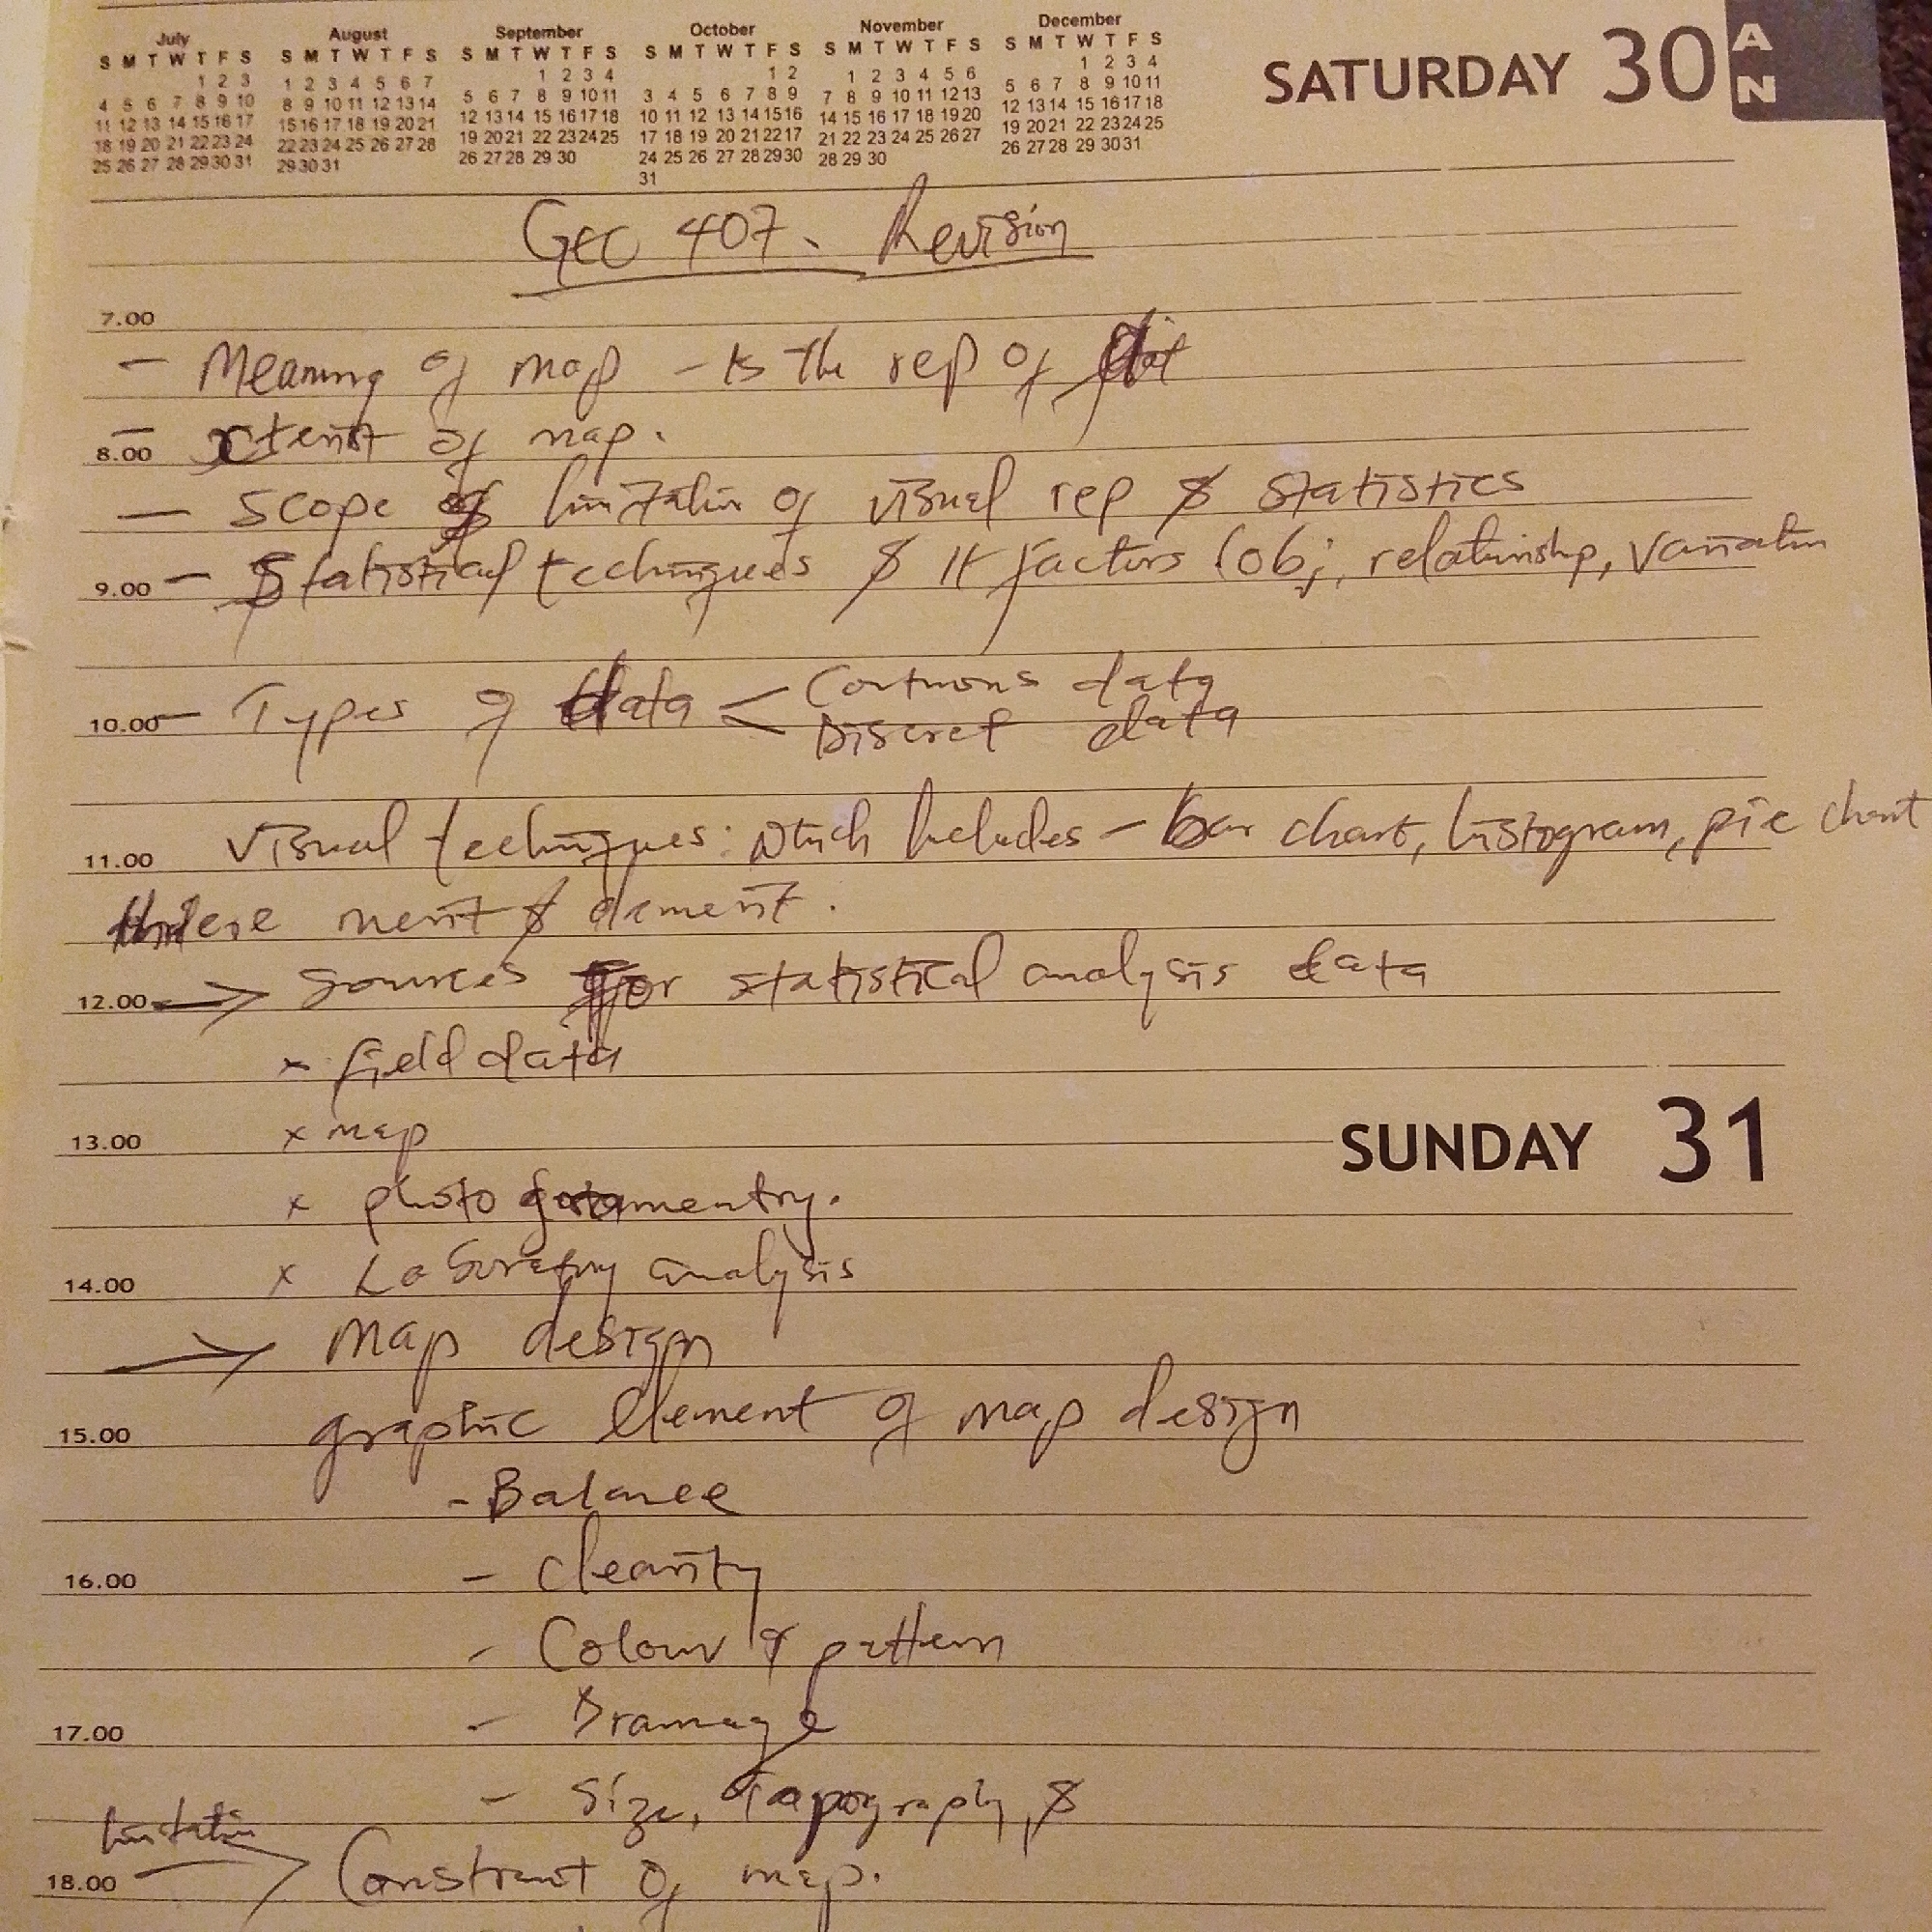 July August September October November December
S M T W T F S S M T W T F S S M T W T F S S M T W T F S S M T W T F S S M T W T F S
1 2 3 1 2 3 4 5 6 7 1 2 3 4 1 2 1 2 3 4 5 6 1 2 3 4
4 5 6 7 8 9 10 8 9 10 11 12 13 14 5 6 7 8 9 10 11 3 4 5 6 7 8 9 7 8 9 10 11 12 13 5 6 7 8 9 10 11
11 12 13 14 15 16 17 15 16 17 18 19 20 21 12 13 14 15 16 17 18 10 11 12 13 14 15 16 14 15 16 17 18 19 20 12 13 14 15 16 17 18
18 19 20 21 22 23 24 22 23 24 25 26 27 28 19 20 21 22 23 24 25 17 18 19 20 21 22 17 21 22 23 24 25 26 27 19 20 21 22 23 24 25
25 26 27 28 29 30 31 29 30 31 26 27 28 29 30 24 25 26 27 28 29 30 28 29 30 26 27 28 29 30 31
31
SATURDAY 30
A
N
GEO 407. Revision
7.00
- Meaning of map - Is the rep of
8.00 - xtent of map.
- Scope of limitation of visual rep & statistics
9.00 - Statistical techniques & It factors (obj, relationship, variation
10.00 - Types of data < Contnons data
Discret data
11.00 Visual techniques: which Includes - bar chart, histogram, pie chart
ment & dement.
12.00 → Sources for statistical analysis data
x field data
13.00 x map
SUNDAY 31
x photo gramentry.
14.00 x Laboratory analysis
→ map design
15.00 graphic Element of map design
- Balance
16.00 - clearity
- Colour & pattern
17.00 - Dramage
- Size, Tapography, &
limitation
18.00 → Constraint of map.